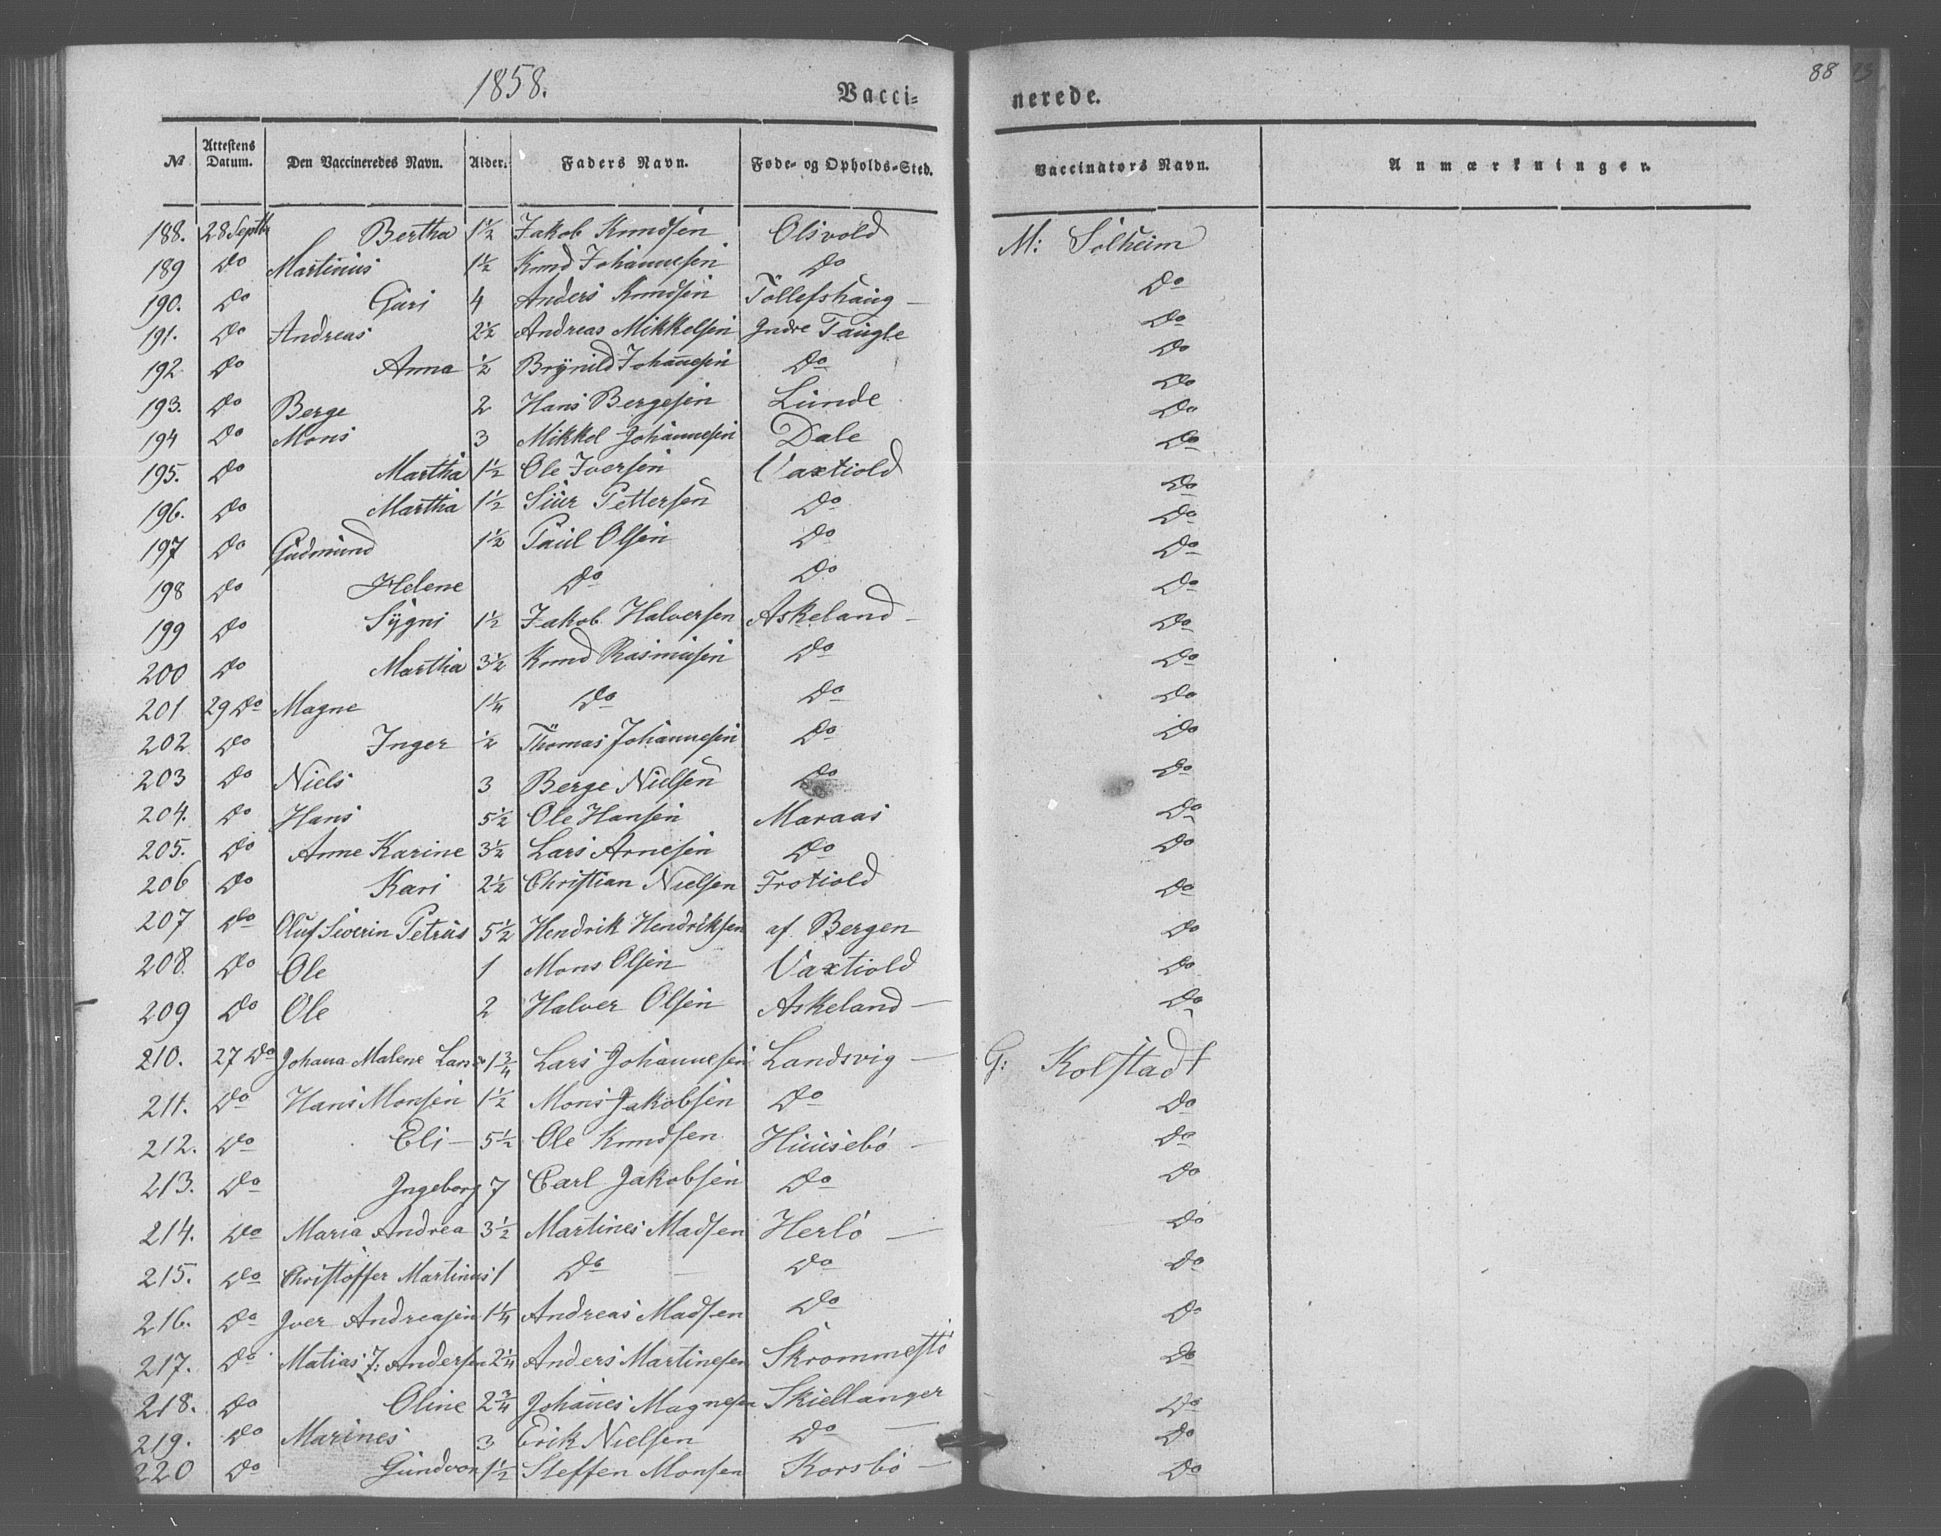 1858. Vacci- nerede. 88 93
№ Attestens Datum. Den Vaccineredes Navn. Alder. Faders Navn. Føde- og Opholds-Sted. Vaccinators Navn. Anmærkninger.
188. 28 Septbr Bertha 1½ Jakob Knudsen Olsvold M: Solheim
189 Do Martinus 1½ Knud Johannesen Do Do
190. Do Guri 4 Anders Knudsen Tollefshaug Do
191. Do Andreas 2½ Andreas Mikkelsen Indre Taugle Do
192 Do Anna ½ Brynild Johannesen Do Do
193. Do Berge 2 Hans Bergesen Lunde Do
194 Do Mons 3 Mikkel Johannesen Dale Do
195. Do Martha 1½ Ole Iversen Vaxtiold Do
196. Do Martha 1½ Siur Pettersen Do Do
197 Do Gudmund 1½ Paul Olsen Do Do
198 Do Helene Do Do Do
199 Do Sygni 1½ Jakob Halversen Askeland Do
200 Do Martha 3½ Knud Rasmusen Do Do
201 29 Do Magne 1¼ Do Do Do
202 Do Inger ½ Thomas Johannesen Do Do
203 Do Niels 3 Berge Nielsen Do Do
204. Do Hans 5½ Ole Hansen Maraas Do
205. Do Anne Karine 3½ Lars Arnesen Do Do
206 Do Kari 2½ Christian Nielsen Frotiold Do
207 Do Oluf Siverin Petrus 5½ Hendrik Hendriksen af Bergen Do
208. Do Ole 1 Mons Olsen Vaxtiold Do
209 Do Ole 2 Halver Olsen Askeland Do
210. 27 Do Johana Malene Lars 1¾ Lars Johannesen Landsvig G: Kolstadt
211. Do Hans Monsen 1½ Mons Jakobsen Do Do
212. Do Eli 5½ Ole Knudsen Huusebö Do
213. Do Ingeborg 7 Carl Jakobsen Do Do
214. Do Maria Andrea 3½ Martines Madsen Herlö Do
215. Do Christoffer Martinus 1 Do Do Do
216. Do Iver Andreasen 1¼ Andreas Madsen Do Do
217. Do Matias J: Andersen 2¼ Anders Martinesen Skrommestö Do
218. Do Oline 2¾ Johannes Magnesen Skiellanger Do
219. Do Marines 3 Erik Nielsen Do Do
220 Do Gundvor 1½ Steffen Monsen Korsbö Do